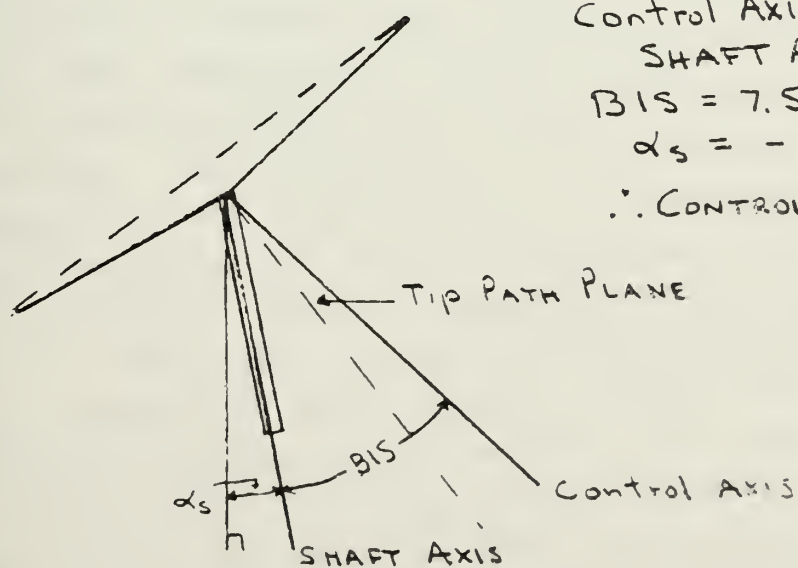 Control Axi
SHAFT A
B1S = 7.5
αs = -
∴ CONTROL
TIP PATH PLANE
B1S
αs
Control Axis
n
SHAFT AXIS